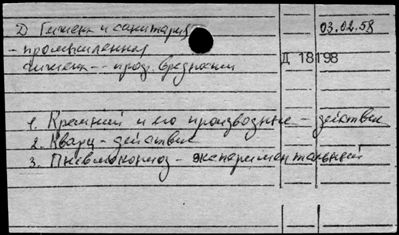 Д Гигиена и санитария 03.02.58
- промышленная
гигиена -- проф. вредности Д 18198
1. Кремний и его производные - действие
2. Кварц - действие
3. Пневмокониоз - экспериментальный